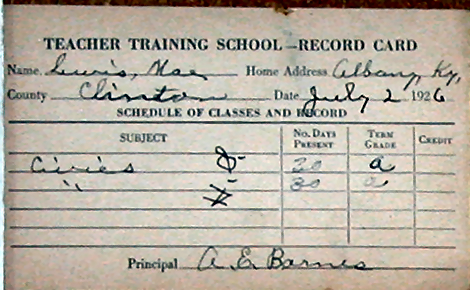 TEACHER TRAINING SCHOOL—RECORD CARD
Name Lewis, Mae Home Address Albany, Ky,
County Clinton Date July 2 1926
SCHEDULE OF CLASSES AND RECORD
SUBJECT No. DAYS PRESENT TERM GRADE CREDIT
Civics 30 a
" 30 a
Principal A. E. Barnes